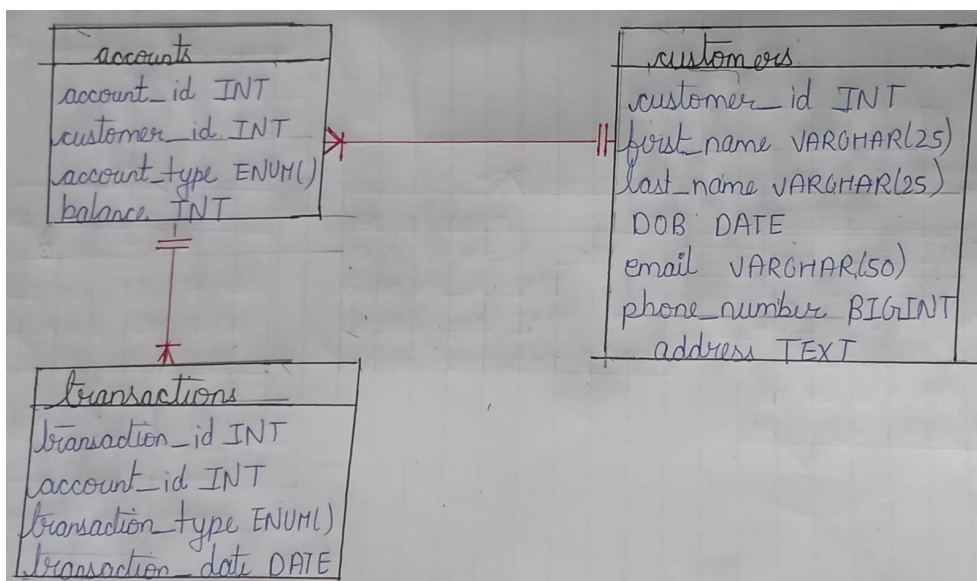 accounts
account_id INT
customer_id INT
account_type ENUM()
balance INT
customers
customer_id INT
first_name VARCHAR(25)
last_name VARCHAR(25)
DOB DATE
email VARCHAR(50)
phone_number BIGINT
address TEXT
transactions
transaction_id INT
account_id INT
transaction_type ENUM()
transaction_date DATE